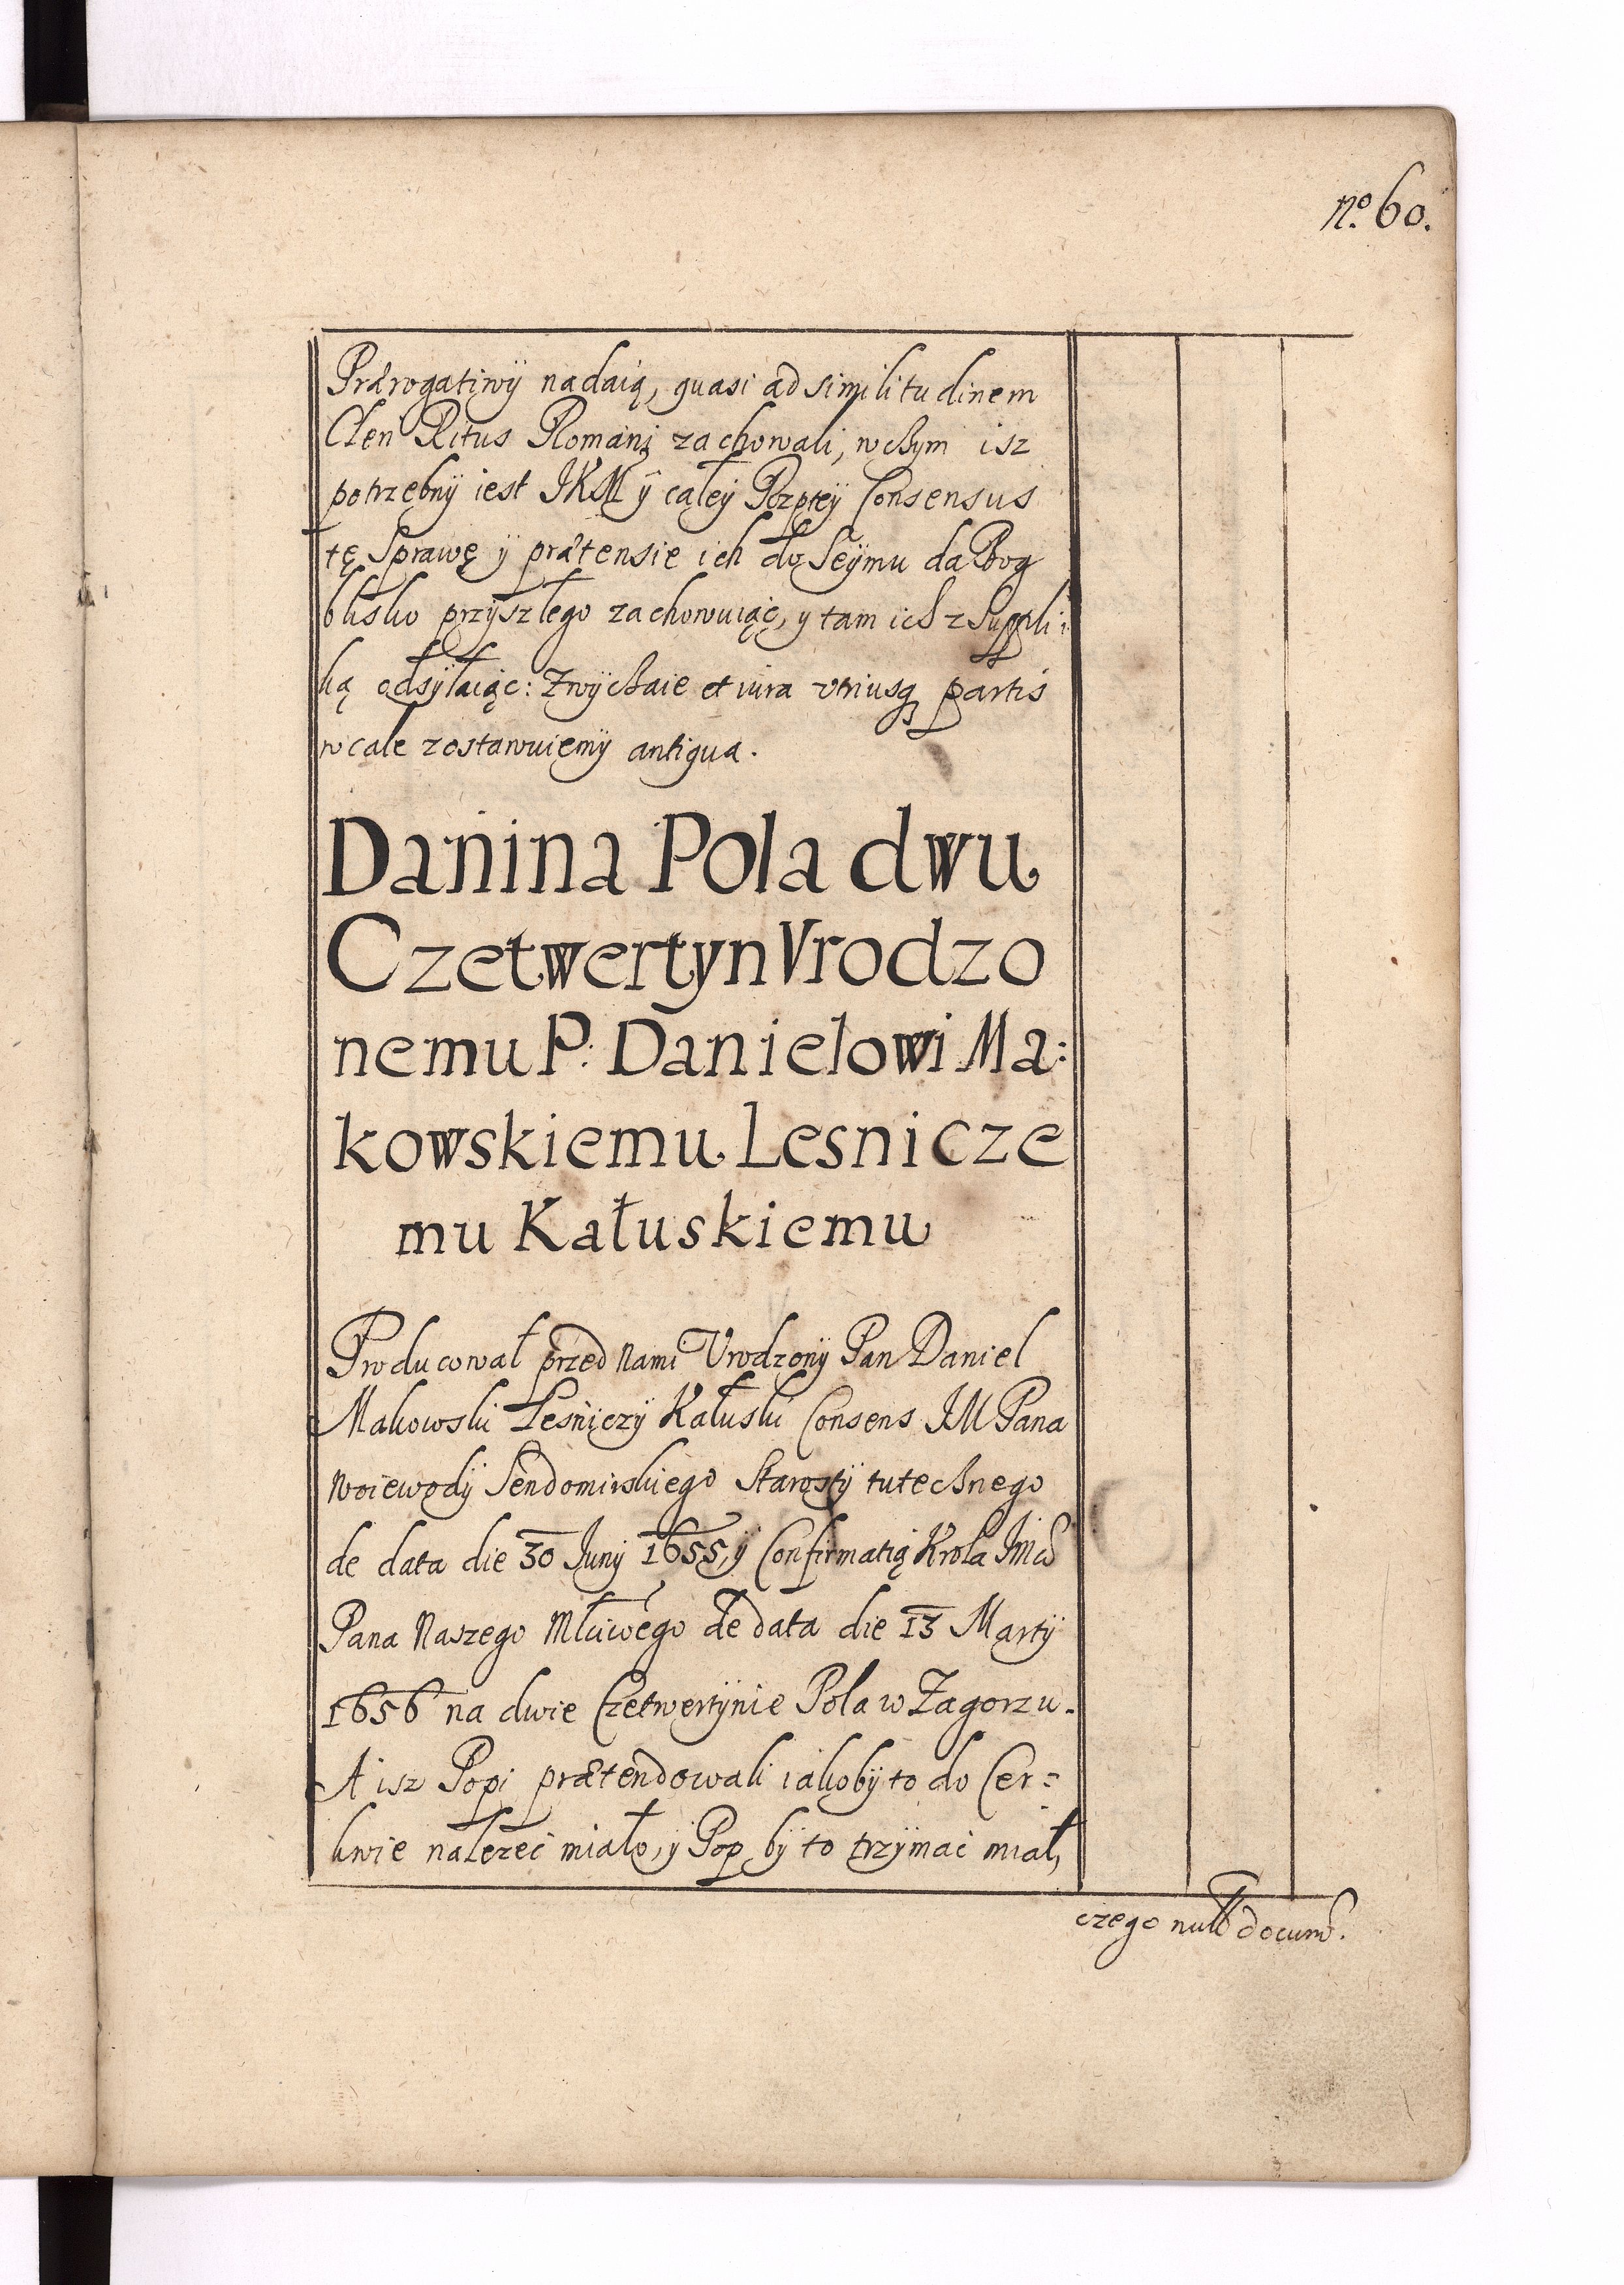 no. 60.
Prærogatiwÿ nadaią, quasi ad similitudinem
Cleri Ritus Romani zachowali, w czym isz
potrzebnÿ iest JKM ÿ całeÿ Rzpteÿ Consensus
tę Sprawę ÿ prætensie ich do Seÿmu da Bog
blisko przÿszłego zachowuiąc, y tam ich z Suppli:
ką odsÿłaiąc: Zwÿczaie et iura utriusq partis
w cale zostawuiemÿ antiqua.
Danina Pola dwu
Czetwertyn Vrodzo
nemu P: Danielowi Ma:
kowskiemu Lesnicze
mu Kałuskiemu
Producował przed Nami Vrodzonÿ Pan Daniel
Makowski Lesniczÿ Kałuski Consens JM Pana
Woiewodÿ Sendomirskiego Starostÿ tutecznego
de data die 30 Junÿ 1655, ÿ Confirmatią Krola JMci
Pana Naszego Młciwego de data die 13 Martÿ
1656 na dwie Czetwertÿnie Pola w Zagorzu.
A isz Popi prætendowali iakobÿ to do Cer=
kwie nalezeć miało, ÿ Pop bÿ to trzÿmać miał,
czego null docum.